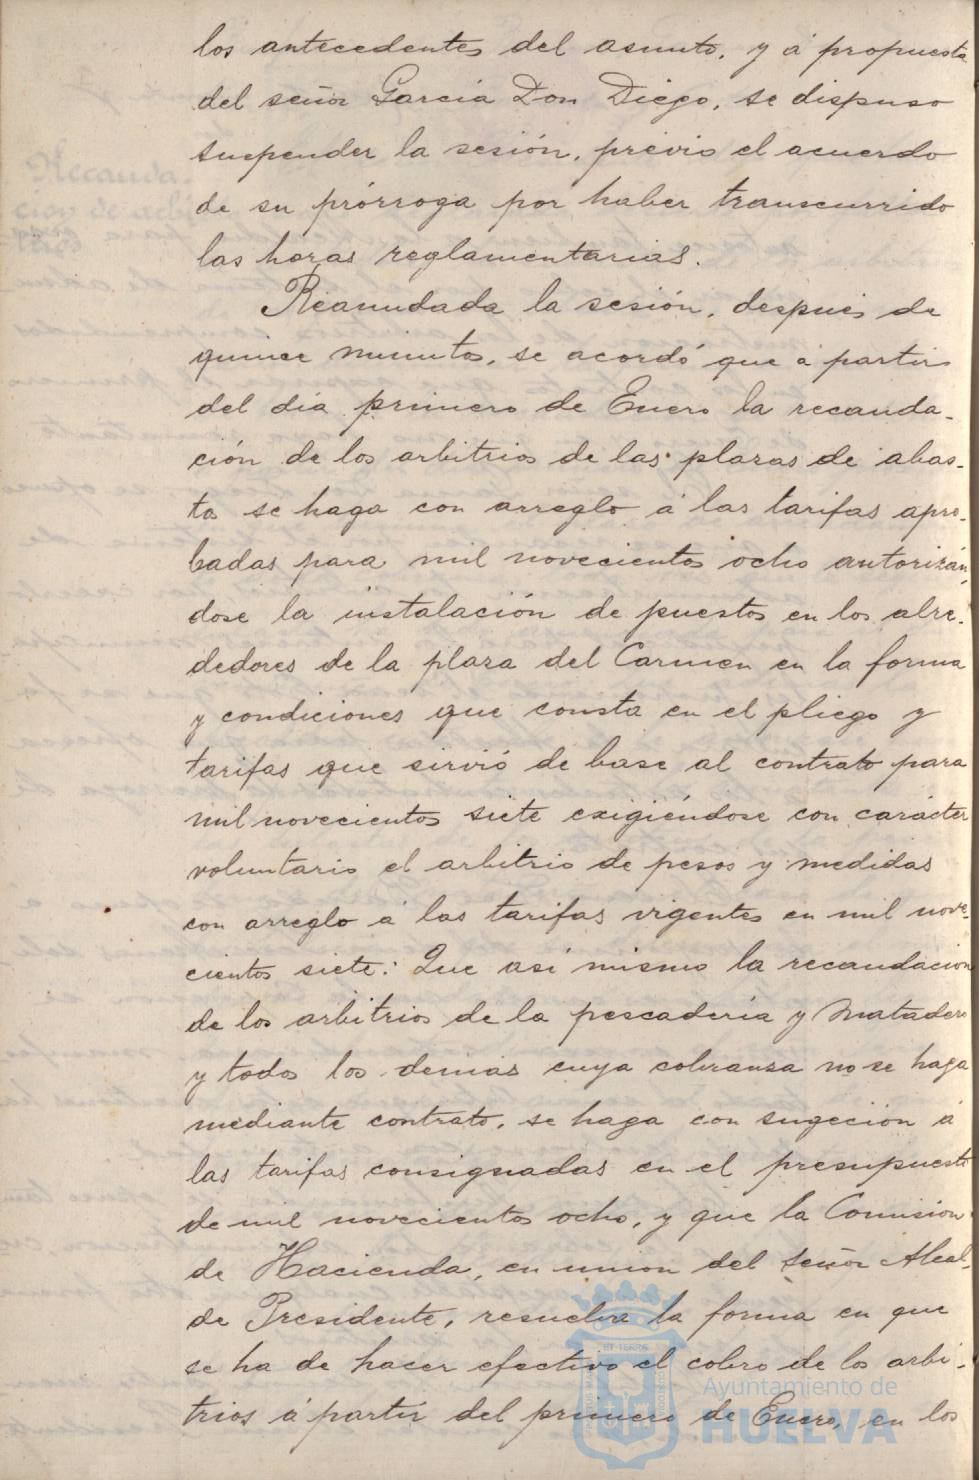 los antecedentes del asunto, y á propuesta
del señor García Don Diego, se dispuso
suspender la sesión, previo el acuerdo
de su prórroga por haber transcurrido
las horas reglamentarias.
Reanudada la sesión, después de
quince minutos, se acordó que á partir
del día primero de Enero la recauda-
ción de los arbitrios de las plazas de abas-
to se haga con arreglo á las tarifas apro-
badas para mil novecientos ocho autorizán-
dose la instalación de puestos en los alre-
dedores de la plaza del Carmen en la forma
y condiciones que consta en el pliego y
tarifas que sirvió de base al contrato para
mil novecientos siete exigiéndose con carácter
voluntario el arbitrio de pesos y medidas
con arreglo á las tarifas vigentes en mil nove-
cientos siete: Que así mismo la recaudación
de los arbitrios de la pescadería y Matadero
y todos los demas cuya cobranza no se haga
mediante contrato, se haga con sugecion á
las tarifas consignadas en el presupuesto
de mil novecientos ocho, y que la Comision
de Hacienda, en union del señor Alcal-
de Presidente, resuelva la forma en que
se ha de hacer efectivo el cobro de los arbi-
trios á partir del primero de Enero, en los
Ayuntamiento de
HUELVA